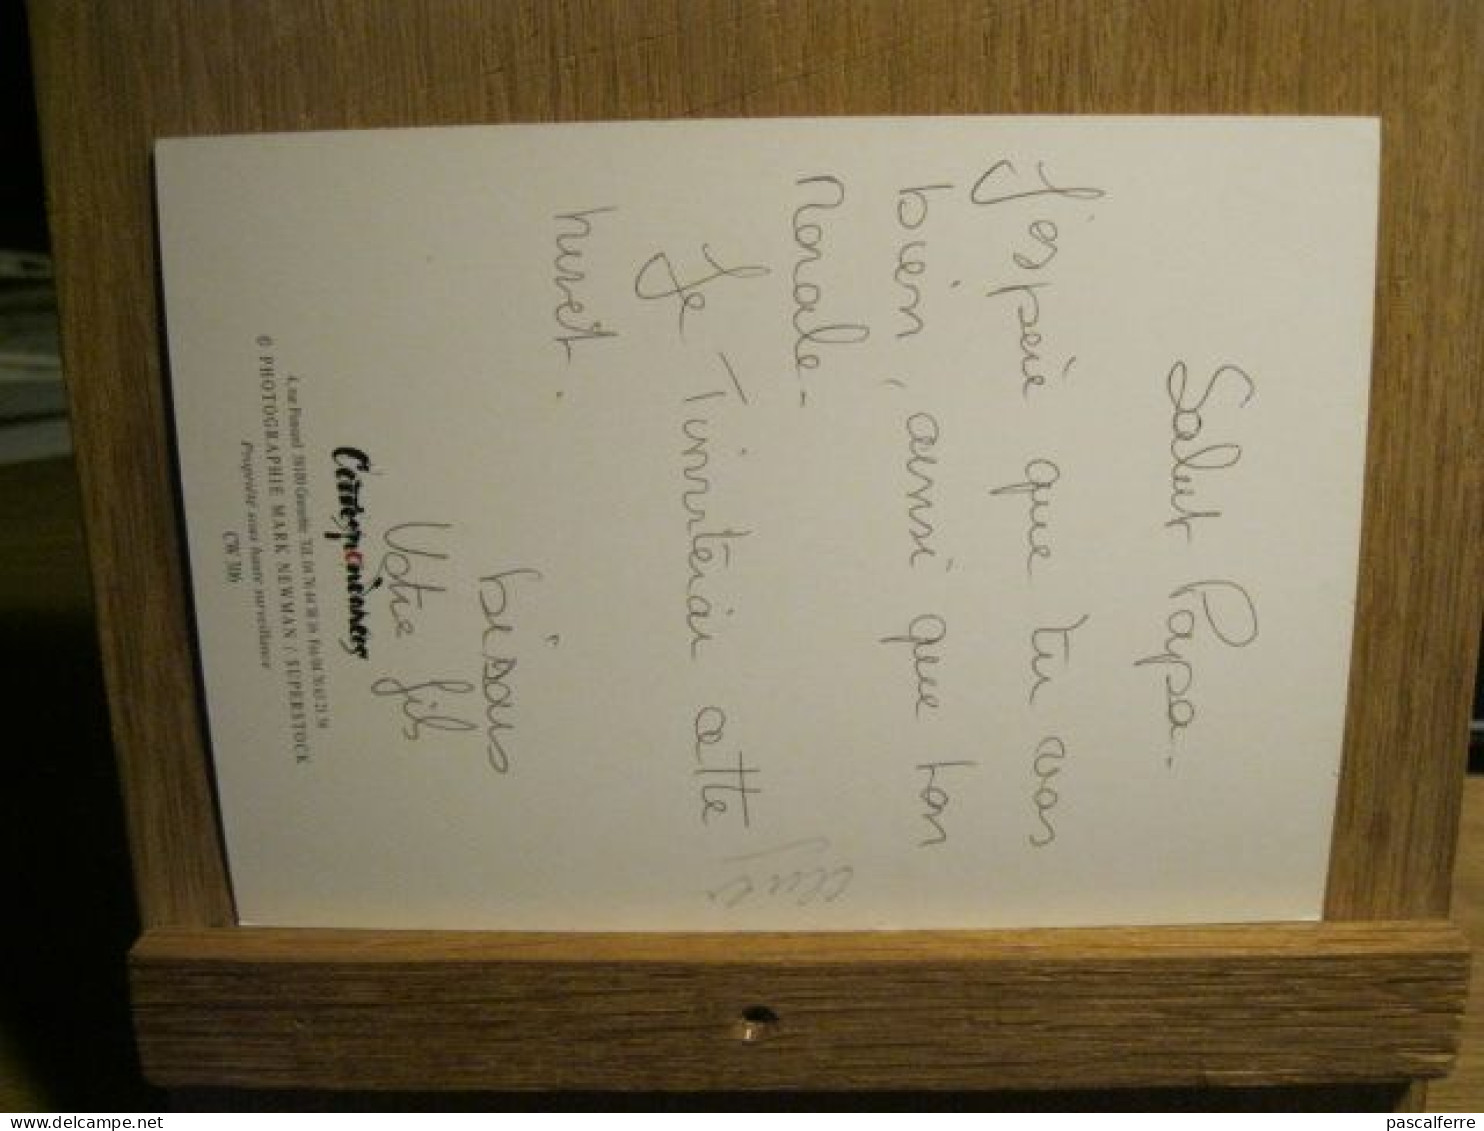 Salut Papa.
J'espère que tu vas
bien, ainsi que ton
morale.
Je T'inviterai cette
bisous
Votre fils
Correspondances
4, rue 38100 Grenoble Tél. 04 76 Fax 04 76
© PHOTOGRAPHIE MARK NEWMAN / SUPERSTOCK
Propriété sous haute surveillance
CW 316
delcampe.net
pascalferre